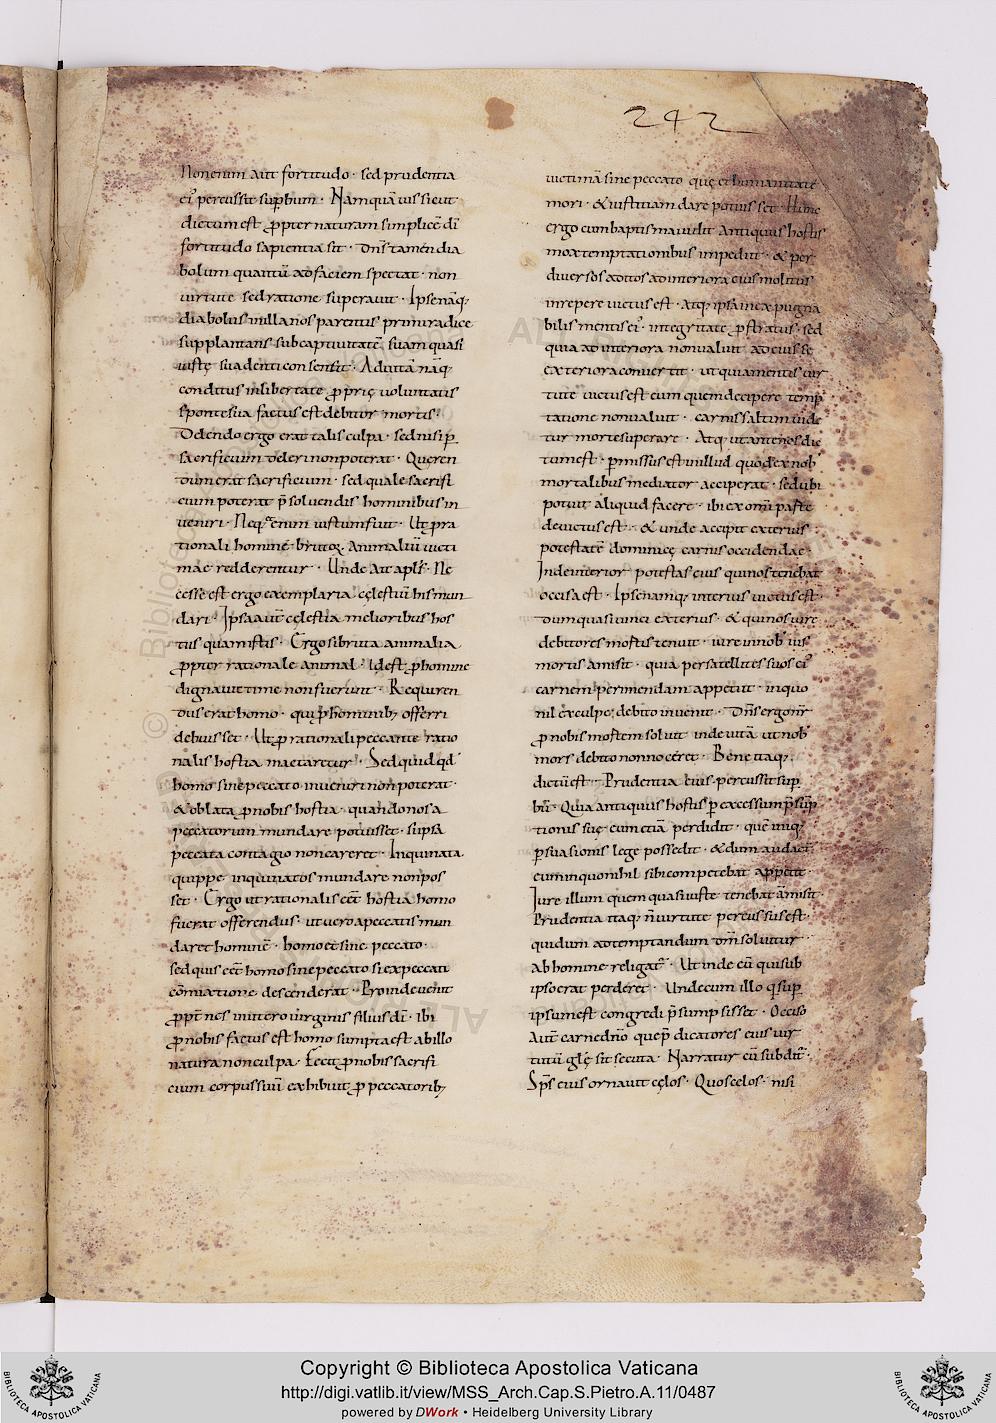 242
Non enim ait fortitudo · sed prudentia
ei' percussit sup̄bum · Nam quā uis sicut
dictum est ꝓpter naturam simplicē dī
fortitudo sapientia sit · Dn̄s tamen dia
bolum quantū ad faciem spectat · non
uirtute sed ratione superauit · Ipse nāq;
diabolus in illa nos parentis primi radice
supplantans sub captiuitatē suam quasi
iustę suadenti consensit · Ad uitā nāq;
conditus in libertate ꝓprię uoluntatis
sponte sua factus est debitor mortis ·
Delendo ergo erat talis culpa · sed nisi ꝑ
sacrificium deleri non poterat · Queren
dum erat sacrificium · sed quale sacrifi
cium poterat ꝓ soluendis hominibus in
ueniri · Neq; enim iustum fuit · Ut ꝓ ra
tionali homine brutoꝝ animaliū uicti
mae redderentur · Unde ait apl's · Ne
cesse est ergo exemplaria cęlestiū his mun
dari · Ipsa aūt cęlestia melioribus hos
tiis quam istis · Ergo si bruta animalia
ꝓpter rationale animal · Idest ꝓ homine
digna uictime non fuerunt · Requiren
dus erat homo · qui ꝓ hominib; offerri
debuisset · Ut ꝓ rationali peccante ratio
nalis hostia mactaretur · Sed quid qd'
homo sine peccato inueniri non poterat ·
& oblata ꝓ nobis hostia · quando nos a
peccatorum mundare potuisset · si ipsa
peccata contagio non careret · Inquinata
quippe inquinatos mundare non pos
set · Ergo ut rationalis eēt hostia homo
fuerat offerendus · ut uero a peccatis mun
daret hominē · homo et sine peccato ·
sed quis eēt homo sine peccato si ex peccati
cōmixtione descenderat · Proinde uenit
ꝓpt' nos in utero uirginis filius dī · ibi
ꝓ nobis factus est homo sumpta est ab illo
natura non culpa · Fecit ꝓ nobis sacrifi
cium corpus suū exhibuit ꝓ peccatorib;
uictimā sine peccato quę et humanitate
mori · & iustitiam dare potuisset · Hunc
ergo cum baptisma uidit antiquus hostis
mox temptationibus impediit · & per
diuersos aditos ad interiora eius molitus
inrepere uictus est · Atq; ipsa inexpugna
bilis mentis ei' · integritate ꝓstratus · sed
quia ad interiora non ualuit ad eius se
exteriora conuertit · ut quia mentis uir
tute uictus est eum quem decipere temp
tatione non ualuit · carnis saltim uide
tur morte superare · Atq; ut ante nos dic
tum est · ꝑmissus est in illud quod ex nob'
mortalibus mediator acciperat · sed ubi
potuit aliquid facere · ibi ex omī parte
deuictus est · & unde accipit exterius
potestatē dominicę carnis occidendae ·
Inde interior potestas eius qui nos tenebat
occisa est · Ipse namq; interius uictus est ·
dum quasi uincit exterius · & qui nos iure
debitores mortis tenuit · iure in nob' ius
mortis amisit · quia per satellites suos ei'
carnem perimendam appetiit · in quo
nil ex culpę debito inuenit · Dn̄s ergo nr̄
ꝓ nobis mortem soluit indebitā ut nob'
mors debita non nocēret · Bene itaq;
dictū est · Prudentia eius percussit sup̄
bū · Quia antiquus hostis ꝑ excessum p̄sūp
tionis suę eum etiā perdidit · quē iniq;
ꝑsuasionis lege possedit · & dum audact'
eum in quo nihil sibi competebat appetit ·
Iure illum quem quasi iuste tenebat amisit ·
Prudentia itaq; n̄ uirtute percussus est ·
qui dum ad temptandum dn̄m soluitur ·
ab homine religat' · Ut inde eū qui sub
ipso erat perderet · Unde cum illo q' sup̄
ipsum est congredi p̄sumpsisset · Occiso
aūt carne dn̄o que p̄dicatores eius uir
tutū glę̄ sit secuta · Narratur cū subdit' ·
Sp̄s eius ornauit cęlos · Quos celos · nisi
Copyright © Biblioteca Apostolica Vaticana
http://digi.vatlib.it/view/MSS_Arch.Cap.S.Pietro.A.11/0487
powered by DWork • Heidelberg University Library
BIBLIOTECA APOSTOLICA VATICANA
BIBLIOTECA APOSTOLICA VATICANA